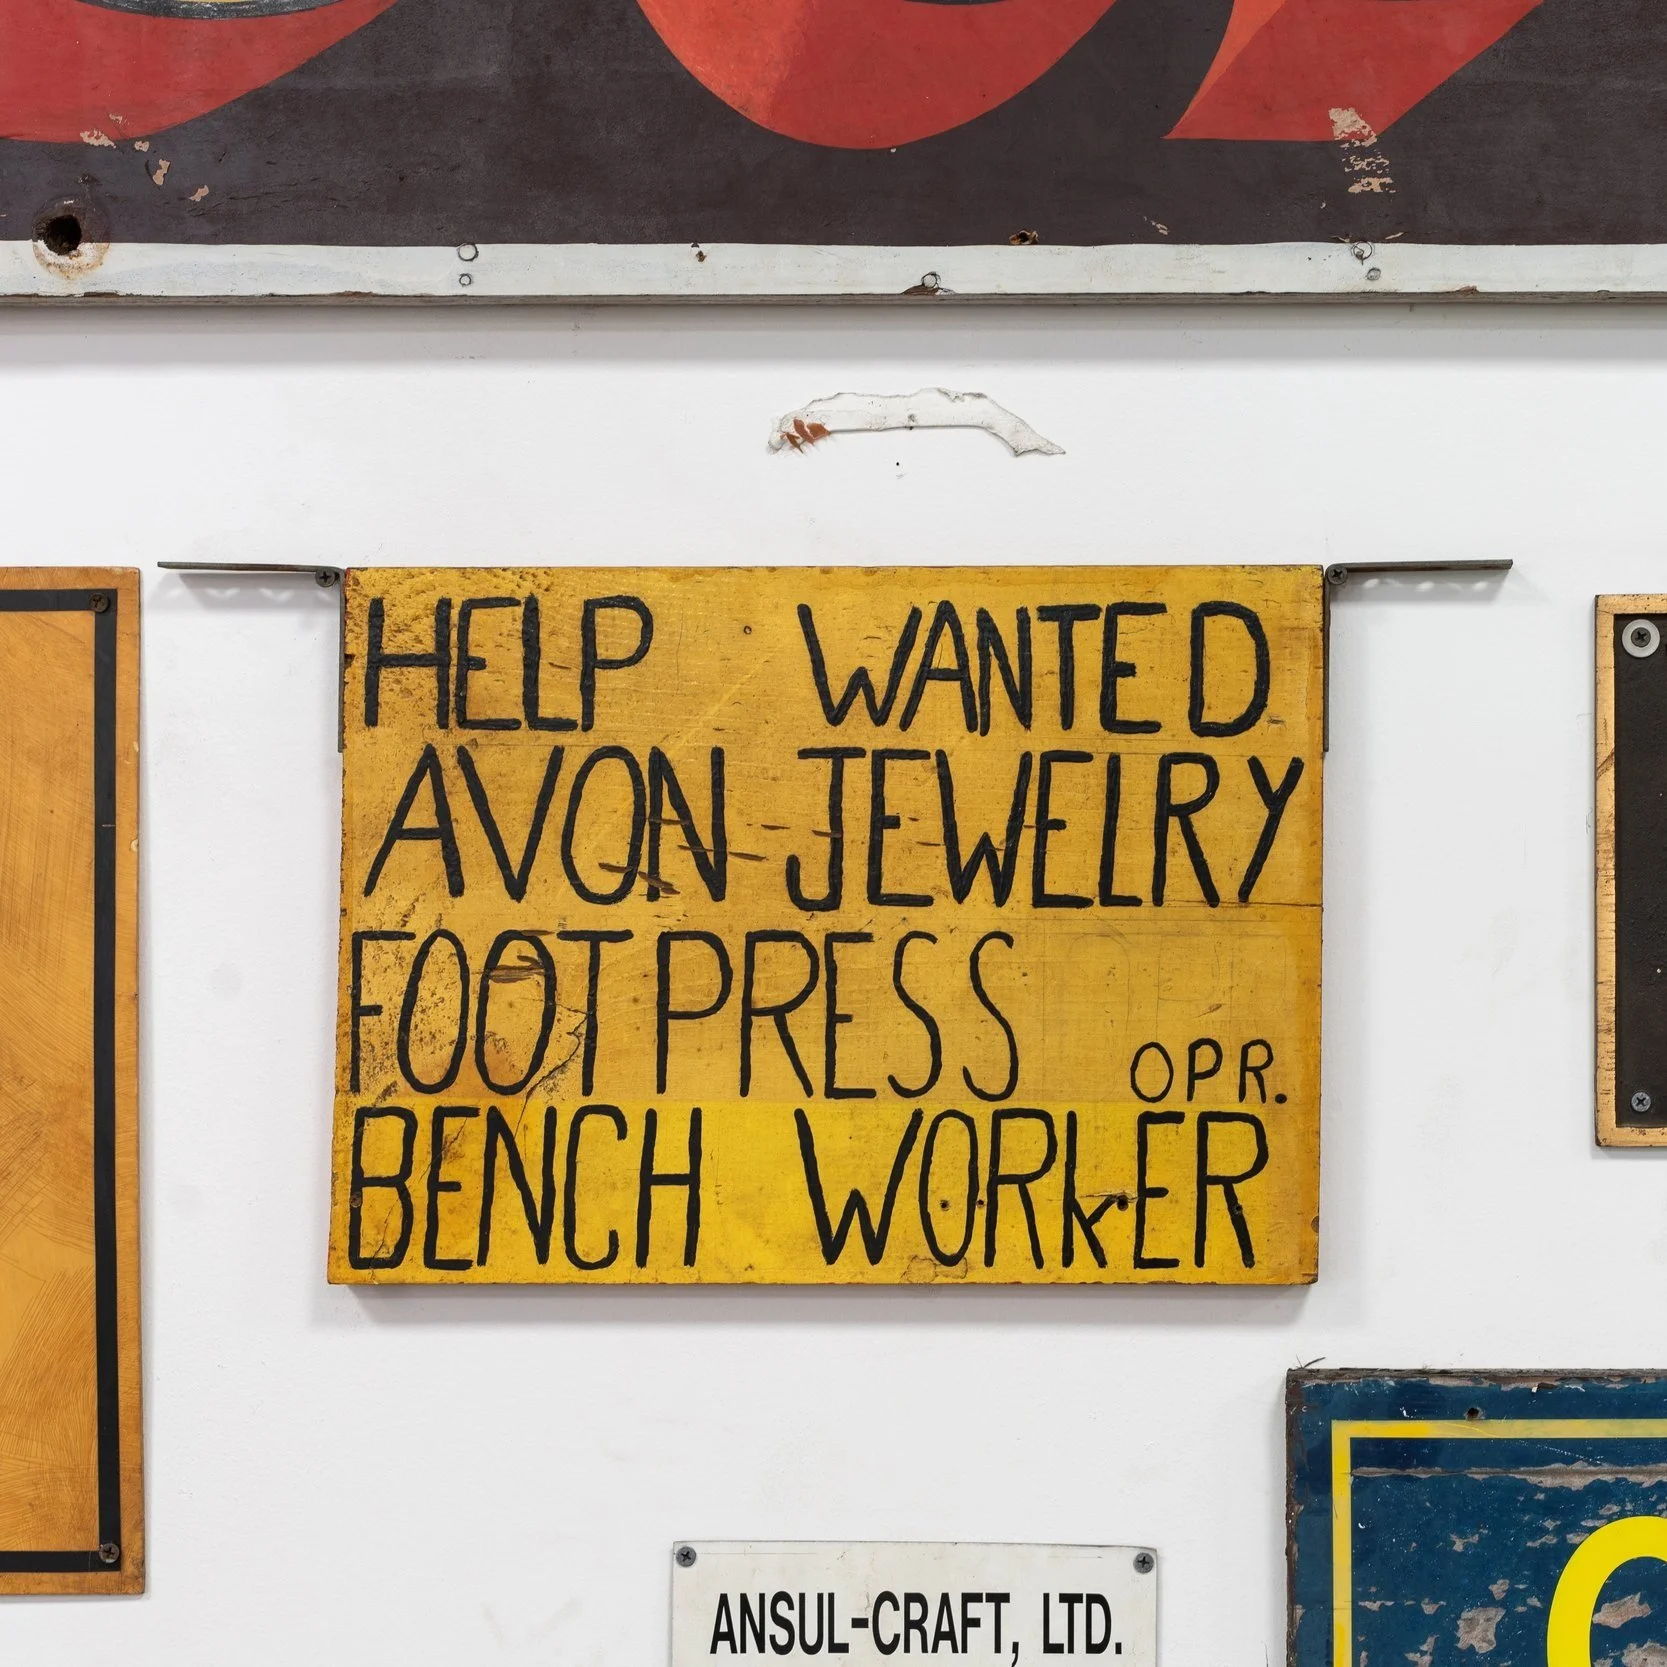 HELP WANTED
AVON JEWELRY
FOOTPRESS OPR.
BENCH WORKER
ANSUL-CRAFT, LTD.